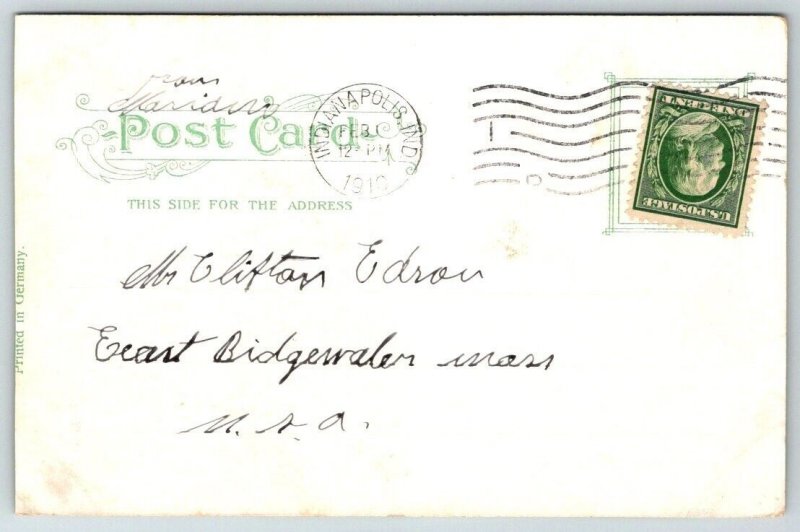 from
Post Card
INDIANAPOLIS, IND.
FEB 1
12 - PM
1910
ONE CENT
U.S. POSTAGE
THIS SIDE FOR THE ADDRESS
Printed in Germany.
Mr Clifton Edson
East Bidgewater mass
U. S. A.